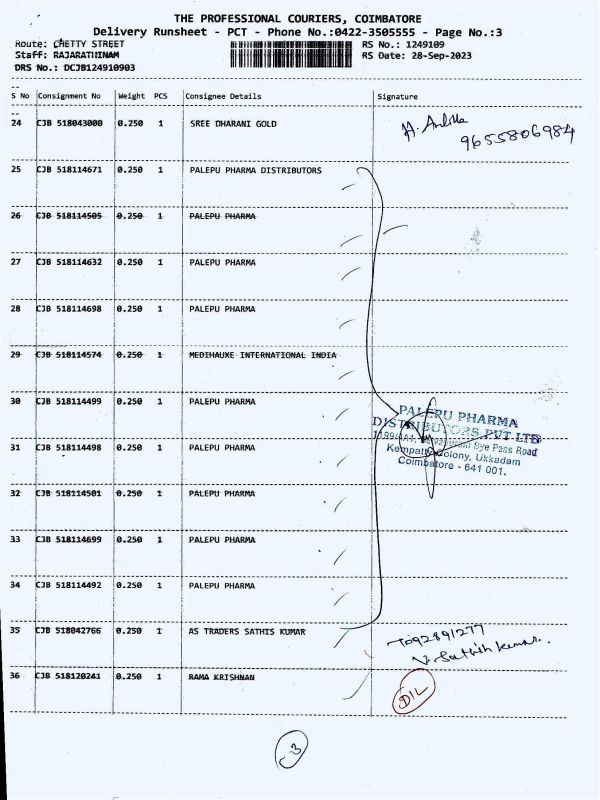 THE PROFESSIONAL COURIERS, COIMBATORE
Delivery Runsheet - PCT - Phone No.:0422-3505555 - Page No.:3
Route: CHETTY STREET RS No.: 1249109
Staff: RAJARATHINAM RS Date: 28-Sep-2023
DRS No.: DCJB124910903
S No Consignment No Weight PCS Consignee Details Signature
24 CJB 518043000 0.250 1 SREE DHARANI GOLD
9655806984
25 CJB 518114671 0.250 1 PALEPU PHARMA DISTRIBUTORS
26 CJB 518114505 0.250 1 PALEPU PHARMA
27 CJB 518114632 0.250 1 PALEPU PHARMA
28 CJB 518114698 0.250 1 PALEPU PHARMA
29 CJB 518114574 0.250 1 MEDIHAUXE INTERNATIONAL INDIA
30 CJB 518114499 0.250 1 PALEPU PHARMA
PALEPU PHARMA
DISTRIBUTORS PVT LTD
Bye Pass Road
Colony, Ukkadam
Coimbatore - 641 001.
31 CJB 518114498 0.250 1 PALEPU PHARMA
32 CJB 518114501 0.250 1 PALEPU PHARMA
33 CJB 518114699 0.250 1 PALEPU PHARMA
34 CJB 518114492 0.250 1 PALEPU PHARMA
35 CJB 518042766 0.250 1 AS TRADERS SATHIS KUMAR
V. Sathish Kumar.
36 CJB 518120241 0.250 1 RAMA KRISHNAN
D/L
3